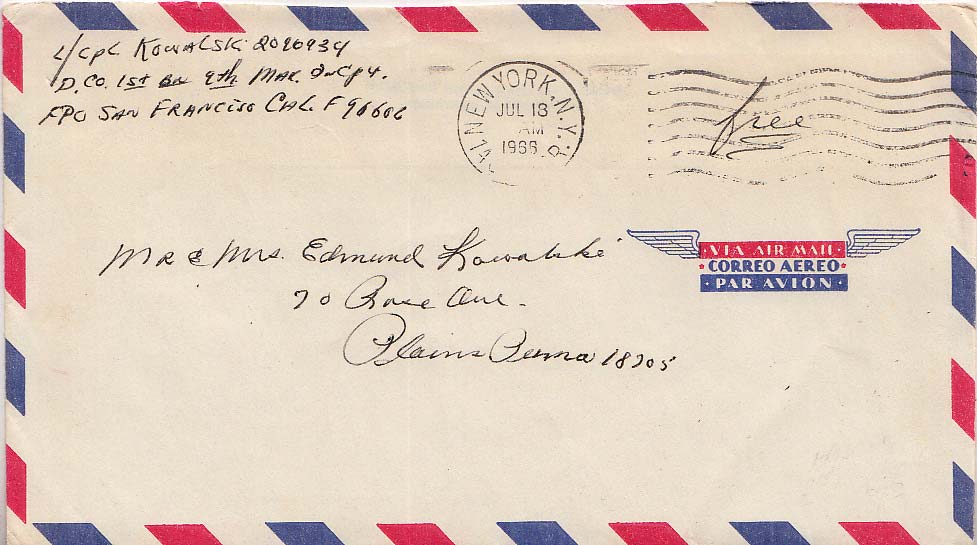 L/Cpl Kowalski 2090934
D. Co. 1st Bn 9th Mar. InCpy.
FPO San Francisco Cal. F 96606
NEW YORK, N.Y.
JUL 13
AM
1966
free
Mr & Mrs. Edmund Kowalski
70 Rose Ave.
Plains Penna 18705
VIA AIR MAIL
CORREO AEREO
PAR AVION